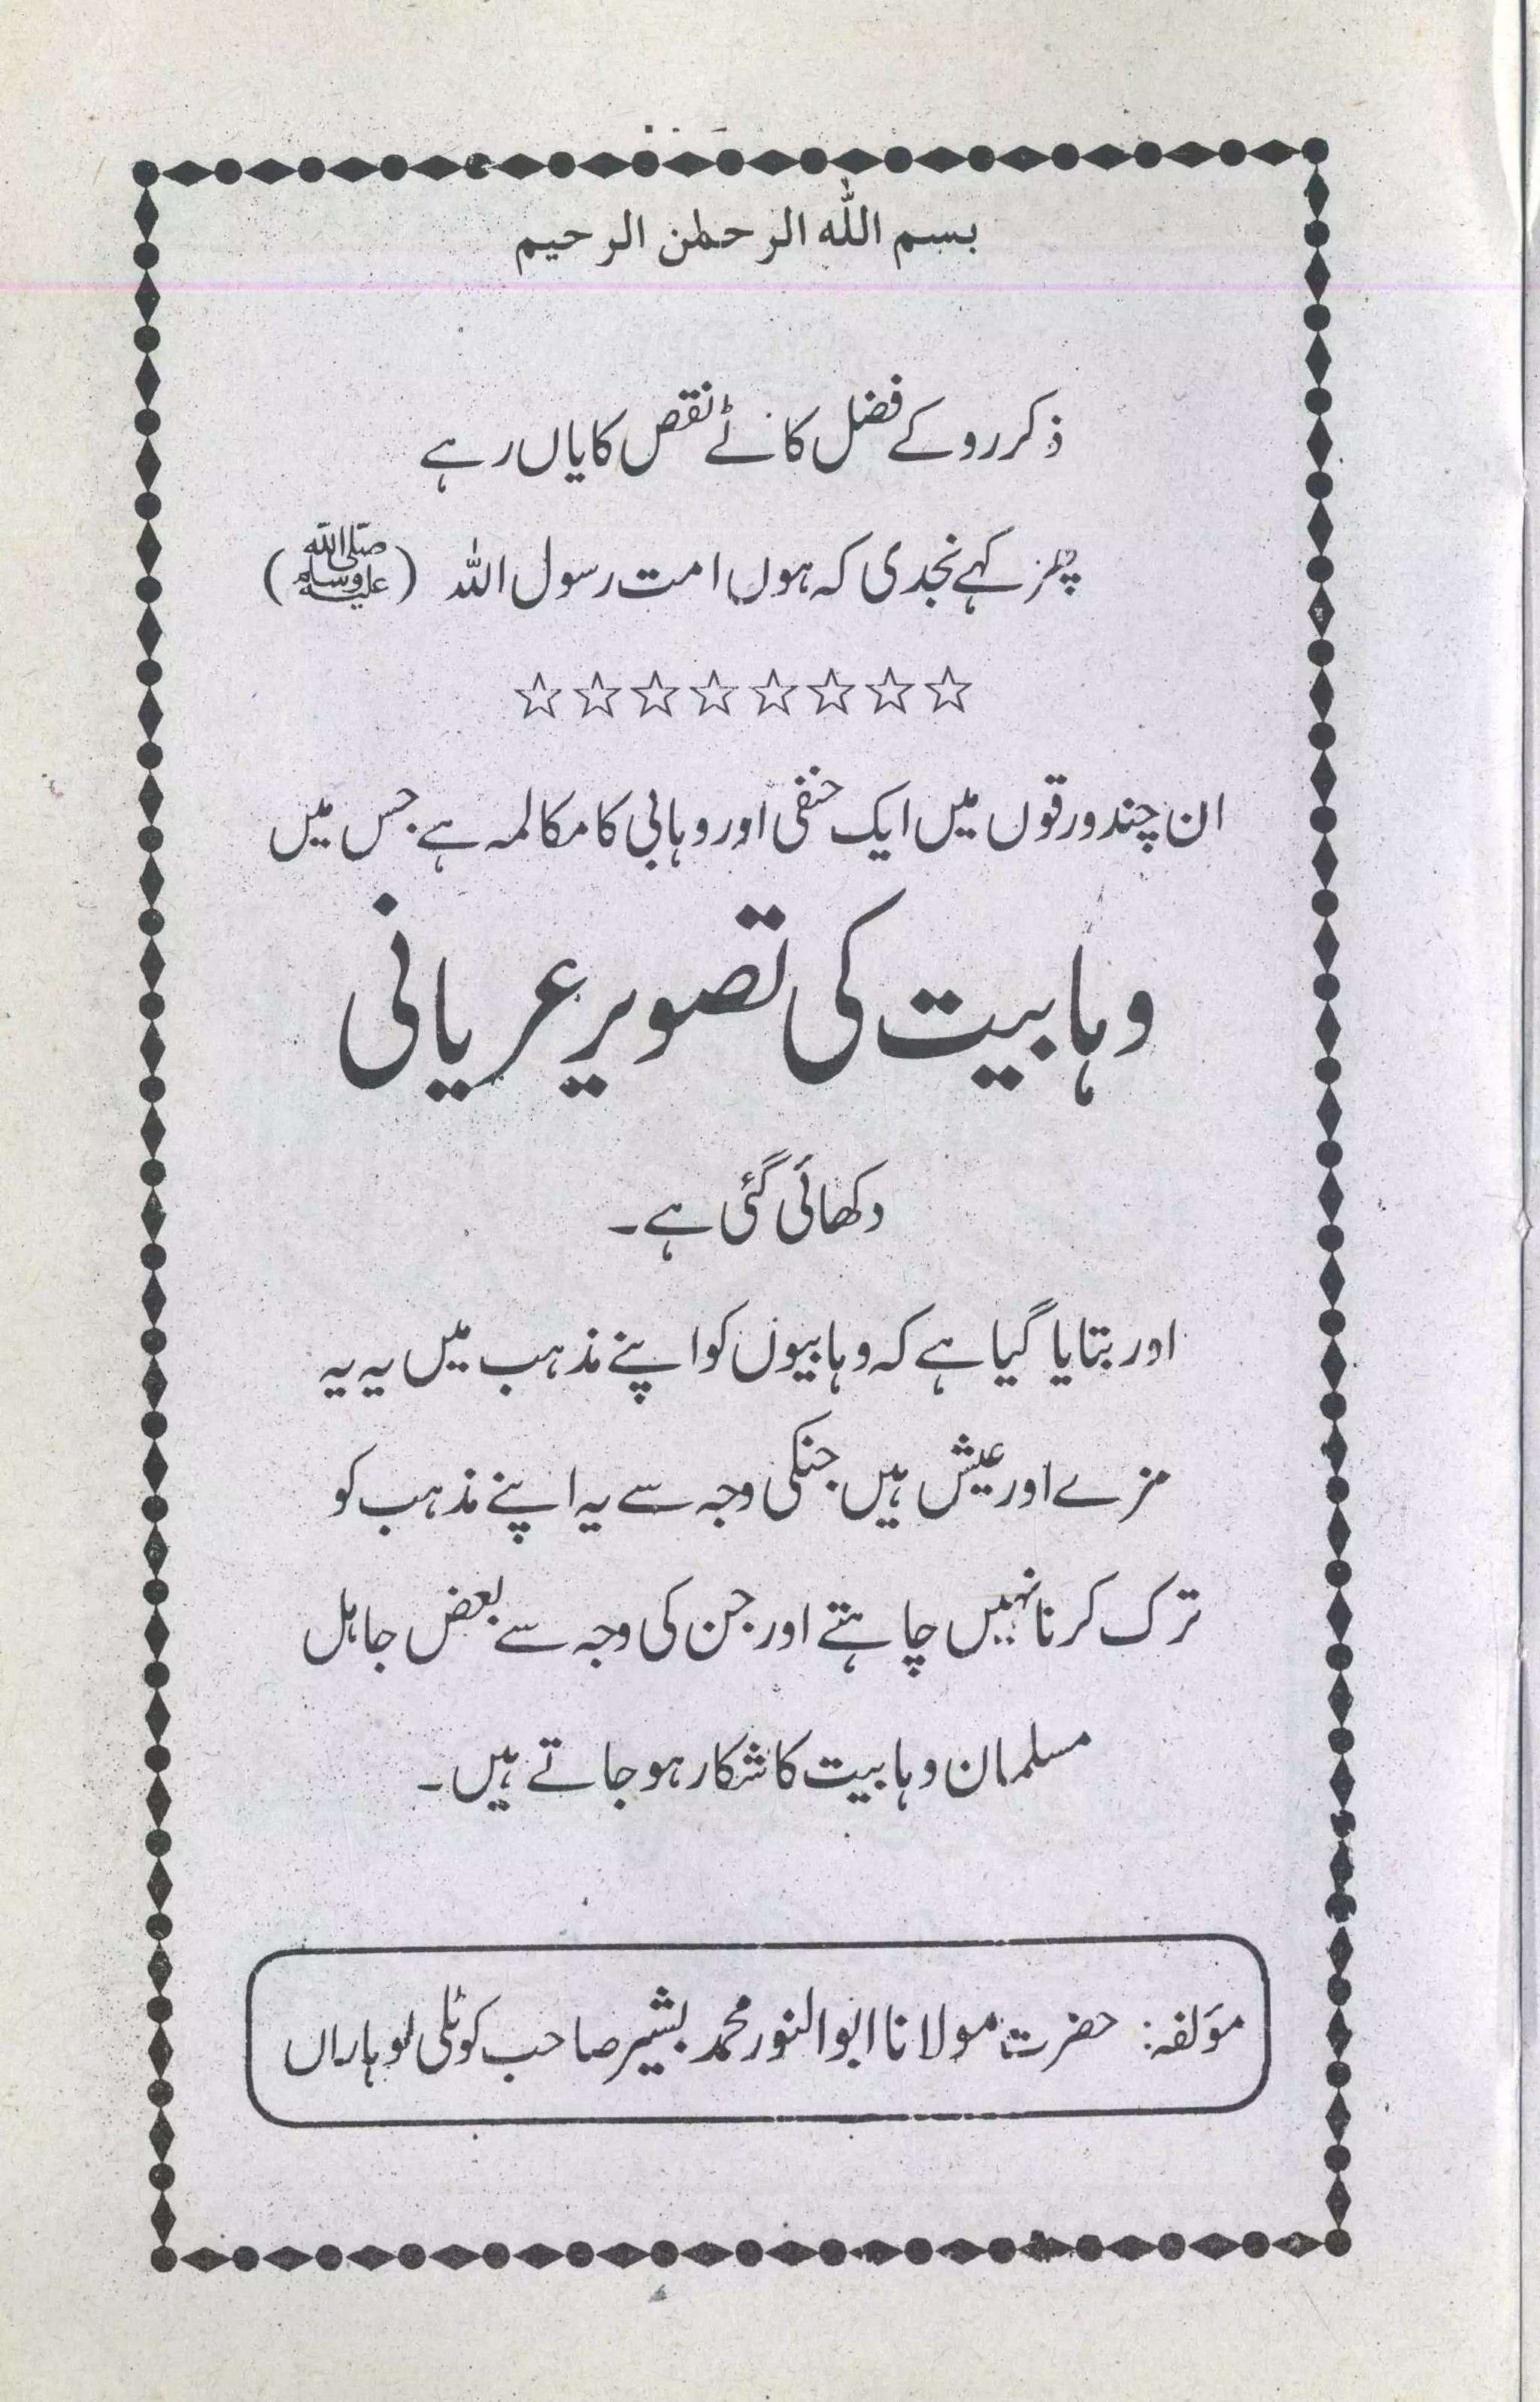 بسم الله الرحمٰن الرحیم
ذکر روکے فضل کاٹے نقص کا یاں رہے
پھر کہے نجدی کہ ہوں امت رسول اللہ (صلی اللہ علیہ وسلم)
☆☆☆☆☆☆☆☆
ان چند ورقوں میں ایک حنفی اور وہابی کا مکالمہ ہے جس میں
وہابیت کی تصویر عریانی
دکھائی گئی ہے۔
اور بتایا گیا ہے کہ وہابیوں کو اپنے مذہب میں یہ یہ
مزے اور عیش ہیں جنکی وجہ سے یہ اپنے مذہب کو
ترک کرنا نہیں چاہتے اور جن کی وجہ سے بعض جاہل
مسلمان وہابیت کا شکار ہو جاتے ہیں۔
مؤلفہ: حضرت مولانا ابوالنور محمد بشیر صاحب کوٹلی لوہاراں